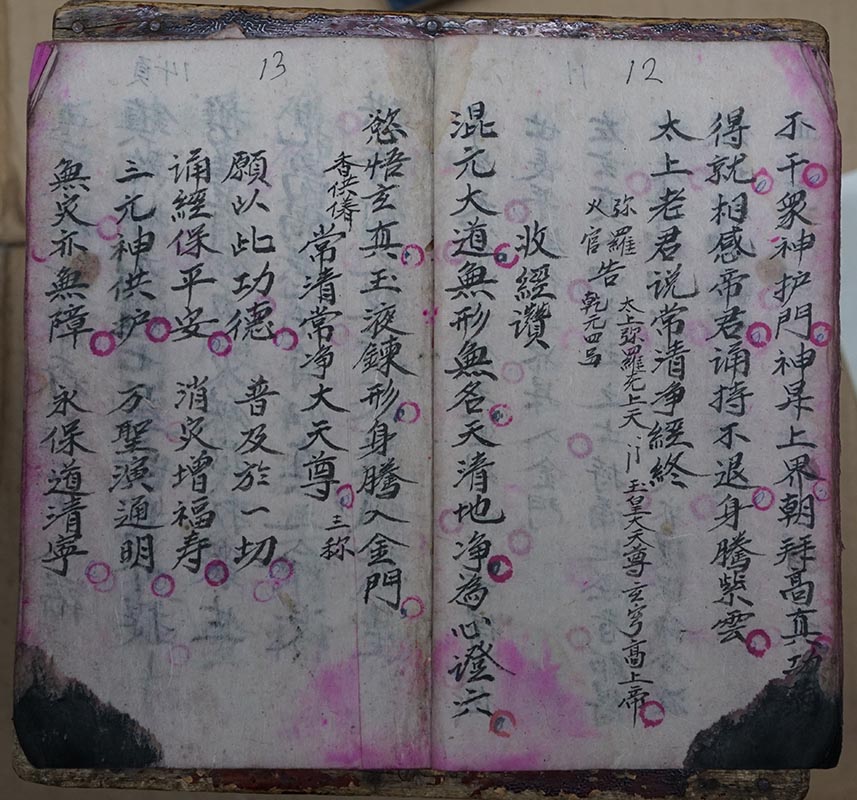 12
不干衆神护門神昇上界朝拜高真功滿
得就相感帝君诵持不退身騰紫雲
太上老君说常清净經終
弥羅
火官
告
乾元四
太上弥羅无上天
玉皇大天尊玄穹高上帝
收經讚
混元大道無形無名天清地净為心證六
13
慾悟玄真玉液鍊形身騰入金門
香供養
常清常净大天尊
三称
願以此功德 普及於一切
诵經保平安 消灾增福寿
三元神供护 万聖演通明
無灾亦無障 永保道清寧